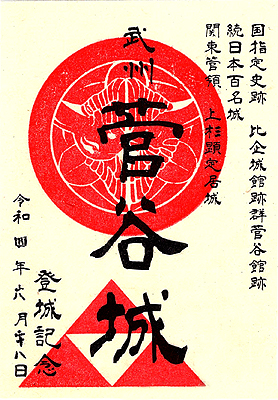 国指定史跡 比企城館跡群菅谷館跡
続日本百名城
関東管領 上杉顕定居城
武州
菅谷城
登城記念
令和四年六月十八日